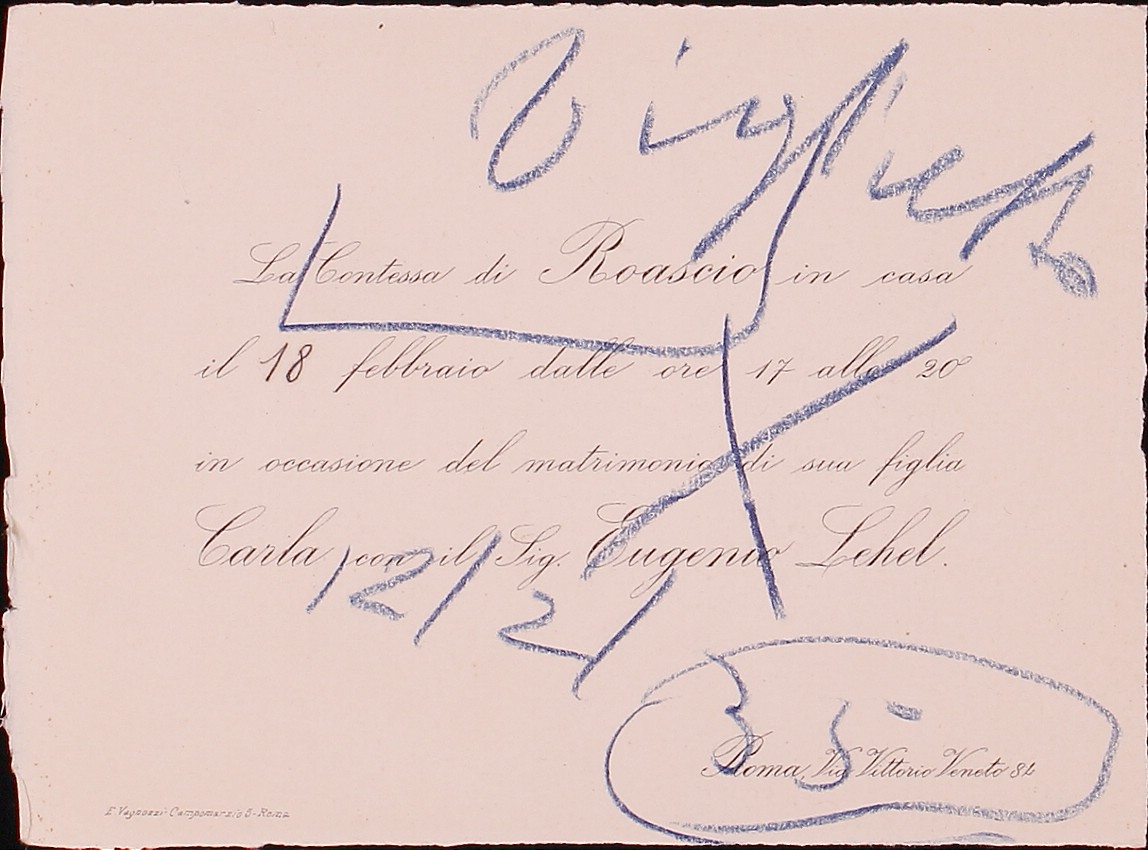 Biglietto
La Contessa di Roascio in casa
il 18 febbraio dalle ore 17 alle 20
in occasione del matrimonio di sua figlia
Carla con il Sig. Eugenio Lehel.
12/2/
35
Roma, Via Vittorio Veneto 84
E. Vagnozzi Campomarzio 5 - Roma